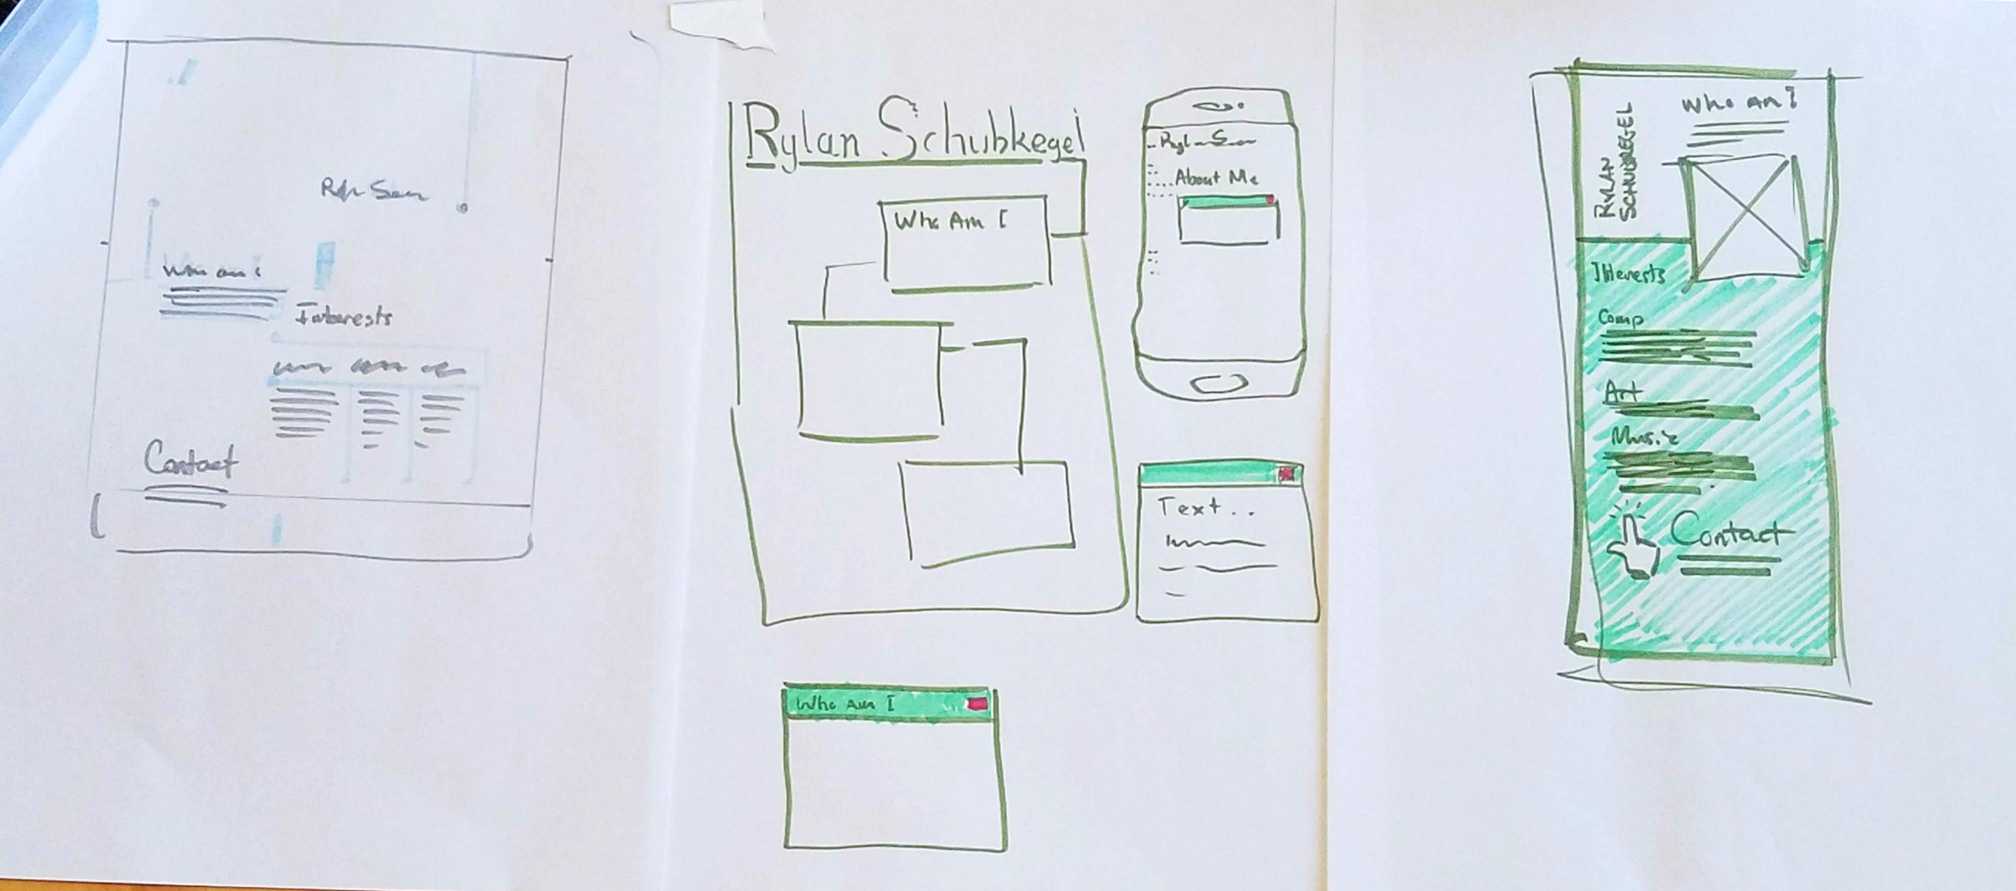 Who am I
Interests
Contact
Rylan Schubkegel
Who Am I
About Me
Text...
Who Am I
RYLAN
SCHUBKEGEL
Who am I
Interests
Comp
Art
Music
Contact